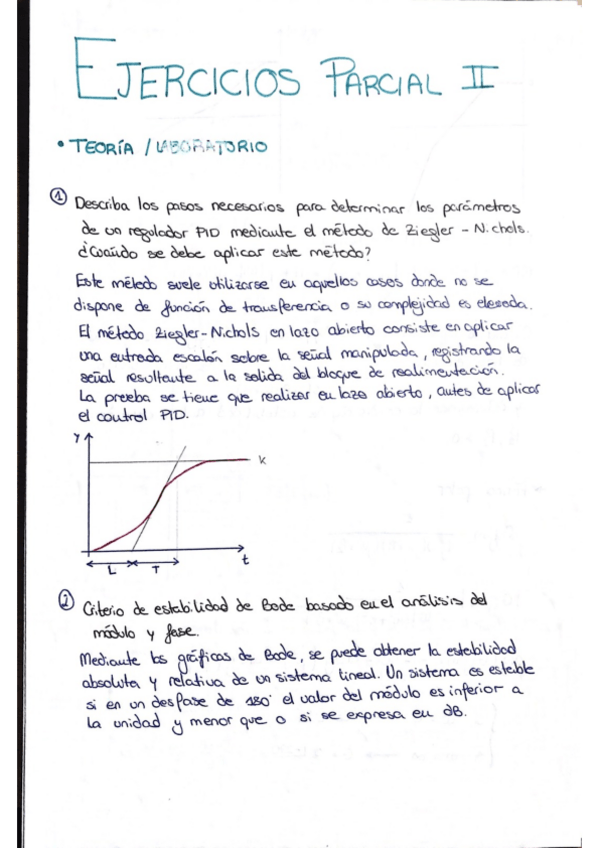 EJERCICIOS PARCIAL II
• TEORÍA / LABORATORIO
① Describa los pasos necesarios para determinar los parámetros
de un regulador PID mediante el método de Ziegler - Nichols.
¿Cuándo se debe aplicar este método?
Este método suele utilizarse en aquellos casos donde no se
dispone de función de transferencia o su complejidad es elevada.
El método Ziegler-Nichols en lazo abierto consiste en aplicar
una entrada escalón sobre la señal manipulada, registrando la
señal resultante a la salida del bloque de realimentación.
La prueba se tiene que realizar en lazo abierto, antes de aplicar
el control PID.
y
K
t
L T
② Criterio de estabilidad de Bode basado en el análisis del
módulo y fase.
Mediante las gráficas de Bode, se puede obtener la estabilidad
absoluta y relativa de un sistema lineal. Un sistema es estable
si en un desfase de 180° el valor del módulo es inferior a
la unidad y menor que 0 si se expresa en dB.